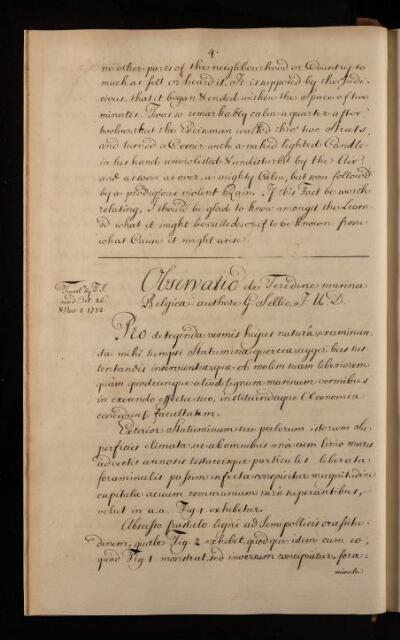 4.
no other parts of the neighbourhood or Country so
much as felt or heard it. It is supposed by the Judi-
cious, that it began & ended within the Space of two
minutes. Twas so remarkably calm a quarter after
twelve, that the Policeman walked thro' two Streets,
and turned a Corner with a naked lighted Candle
in his hand unmolested & undisturbed by the Air:
and as soon as over, a mighty Calm, but soon followed
by a prodigious violent Rain. If this Fact be worth
relating, I should be glad to know amongst the Learn-
ed what it might be called, or if to be known from
what Cause it might arise.
Observatio de Teredine marina
Belgica: authore G. Sellio, J. U. D.
Oct. 26.
& Nov. 2. 1732
Pro detegenda vermis hujus natura examinan-
da mihi sumpsi Statumina quercea aggeribus sus
tentandis inservientia; quae ob molem suam liberiorem
quam quodcunque aliud lignum marinum vermibus
in exerendo effectu suo, instituendaque Oeconomia
concedunt facultatem.
Exterior Statuminum seu palorum istorum Su-
perficies elimata, ac ab omnibus una cum limo maris
advectis arenosis testaceisque particulis liberata
foraminulis passim infecta conspicitur magnitudine
capitula acuum communium raro superantibus,
velut in a.a. Fig. 1 exhibetur.
Abscisso frustulo ligni ad Semipollicis crassitu-
dinem, quale Fig. 2 exhibet, quodque idem cum eo,
quod Fig. 1 monstrat, sed inversum concipiatur, fora=
minula